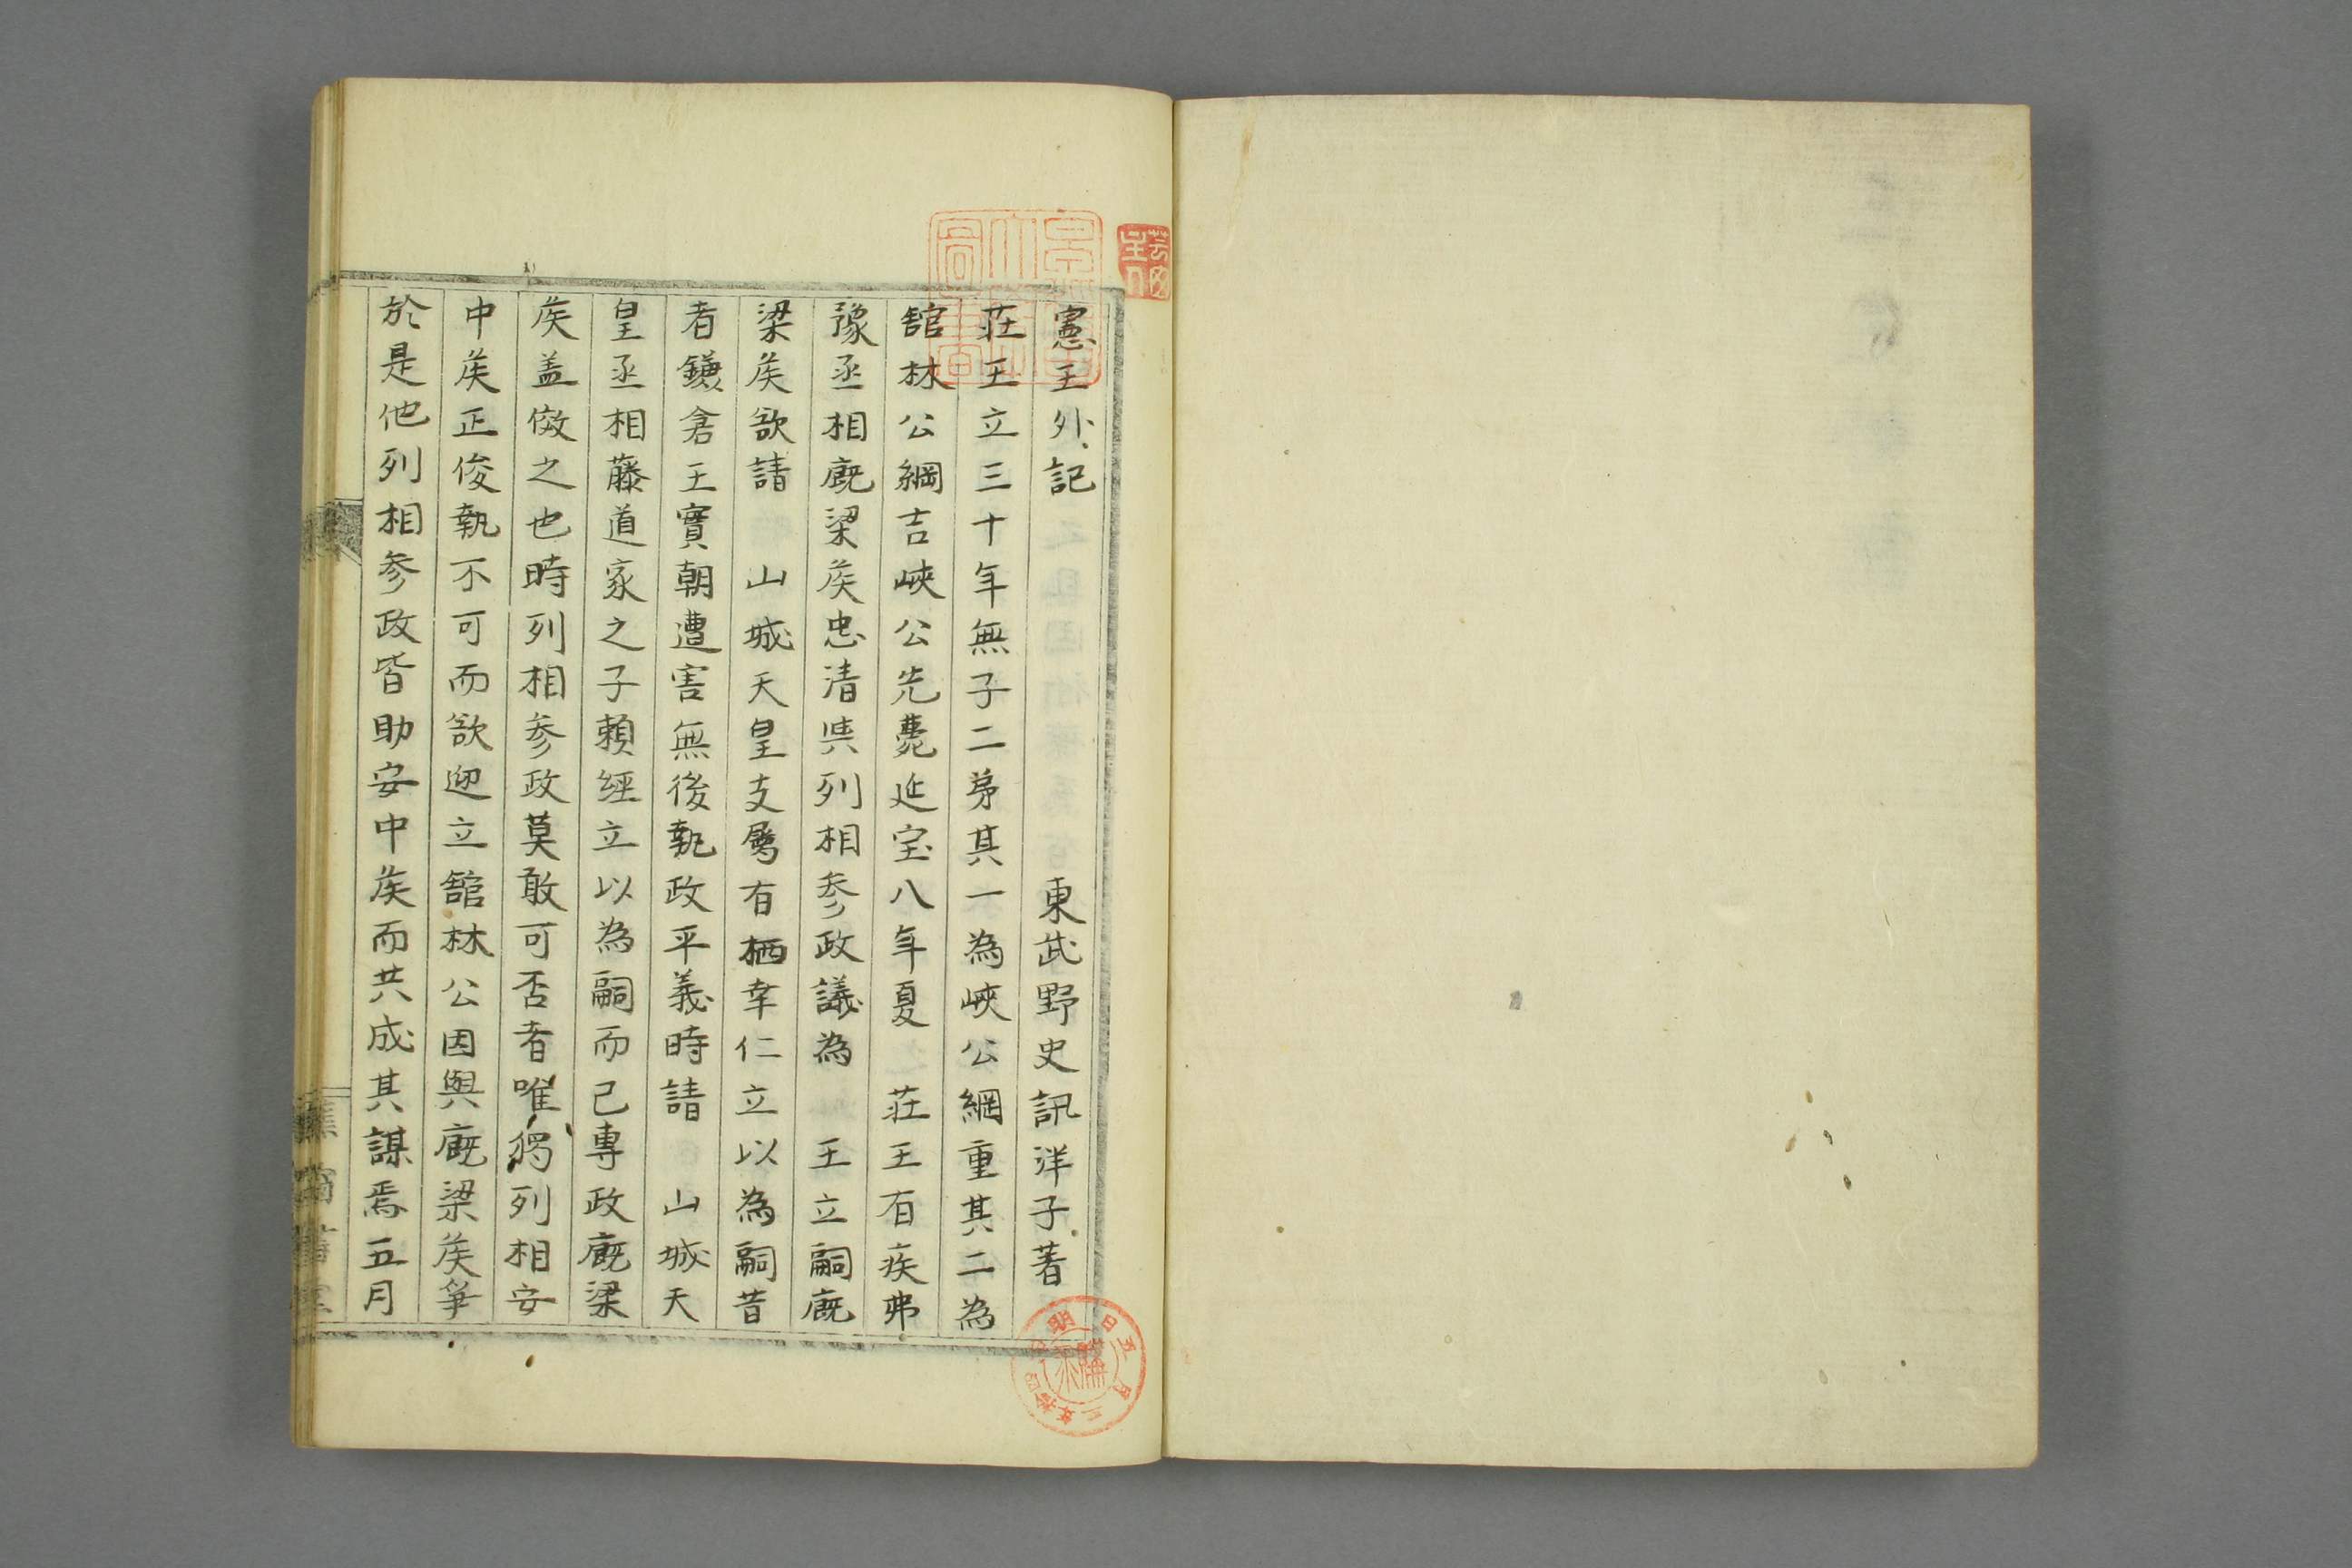 憲王外記
東武野史訊洋子著
莊王立三十年無子二弟其一為峽公綱重其二為
舘林公綱吉峽公先薨延宝八年夏　莊王有疾弗
豫丞相廐梁侯忠清與列相参政議為　王立嗣廐
梁侯欲請　山城天皇支屬有栖宰仁立以為嗣昔
者鎌倉王實朝遭害無後執政平義時請　山城天
皇丞相藤道家之子頼經立以為嗣而己專政廐梁
侯盖倣之也時列相参政莫敢可否者唯獨列相安
中侯正俊執不可而欲迎立舘林公因與廐梁侯爭
於是他列相参政皆助安中侯而共成其謀焉五月